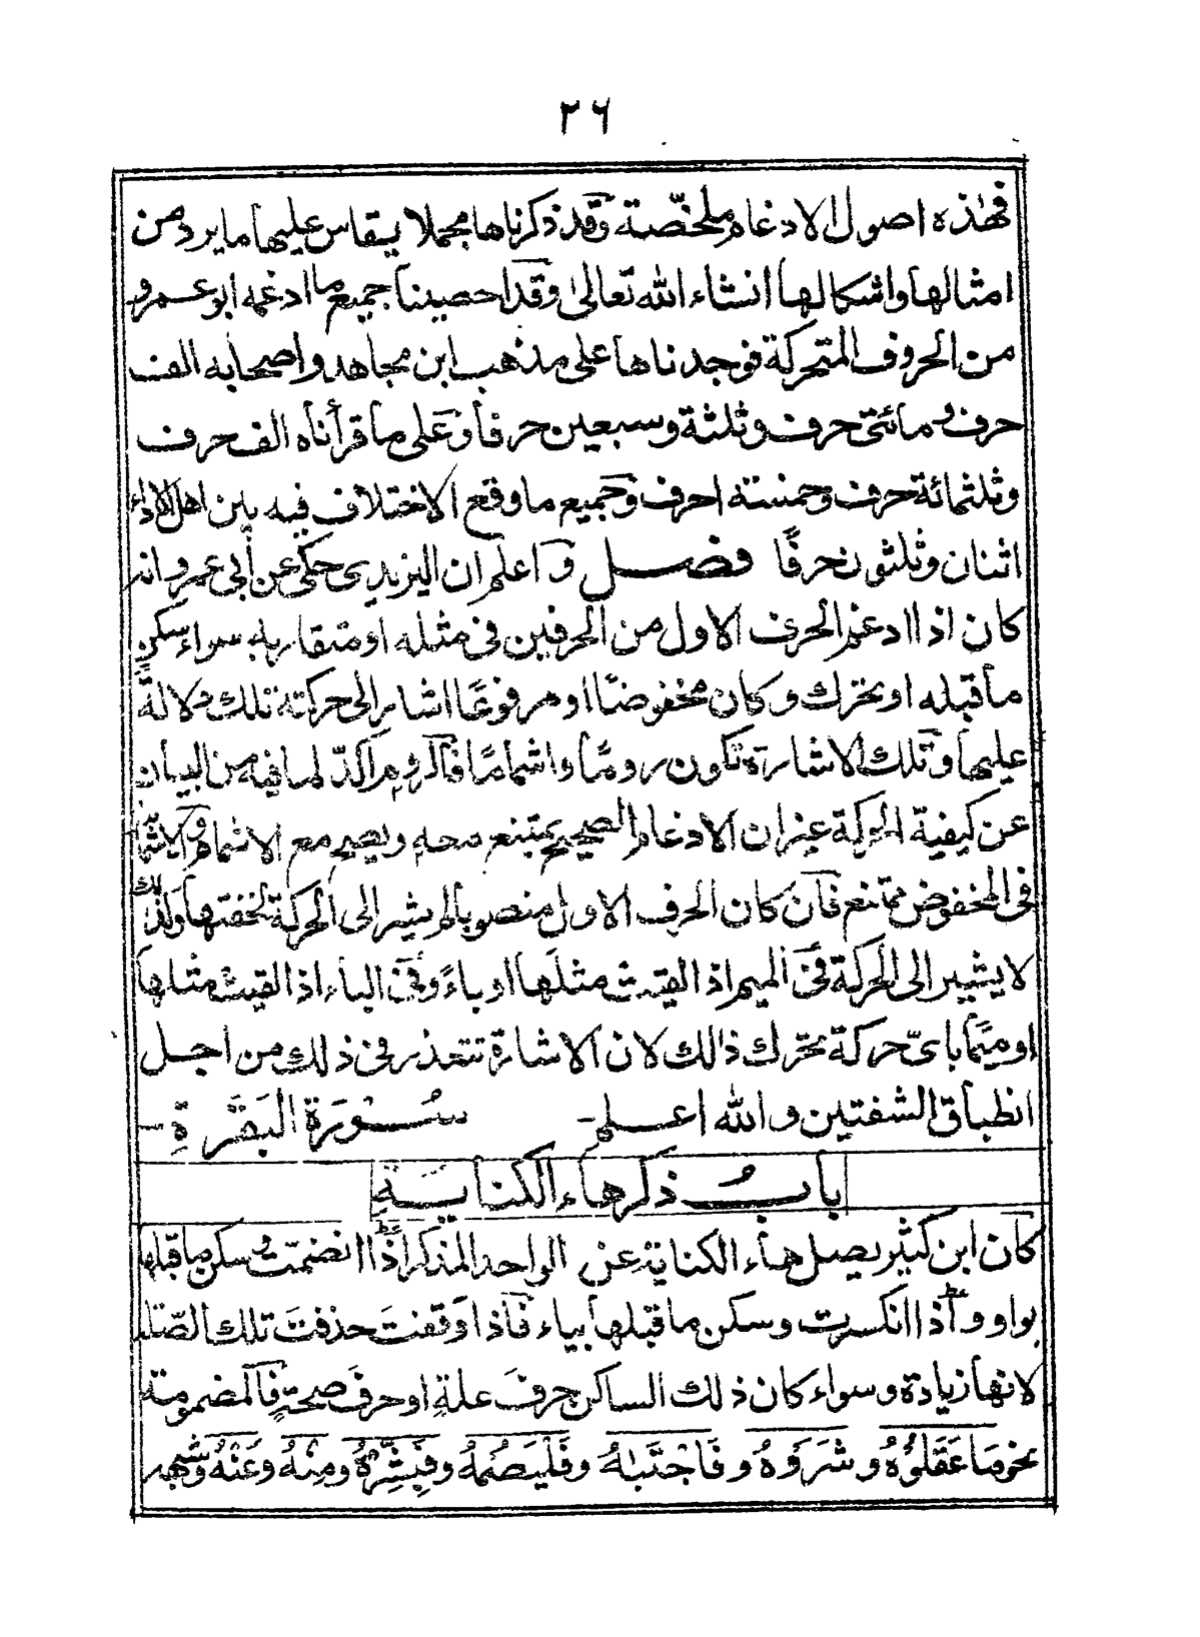 ٢٦
فهذه اصول الادغام ملخّصة وقد ذكرناها مجملا يقاس عليها ما يرد من
امثالها واشكالها انشاء الله تعالى وقد احصينا جميع ما ادغمه ابو عمرو
من الحروف المتحركة فوجدناها على مذهب ابن مجاهد واصحابه الف
حرف ومائتى حرف وثلثة وسبعين حرفا وعلى ما قرأناه الف حرف
وثلثمائة حرف وخمسة احرف وجميع ما وقع الاختلاف فيه بين اهل الاداء
اثنان وثلثون حرفًا فصل واعلم ان اليزيدى حكى عن أبى عمرو انه
كان اذا ادغم الحرف الاول من الحرفين فى مثله او متقاربه سواء سكن
ما قبله او تحرك وكان مخفوضًا او مرفوعًا اشار الى حركته تلك دلالةً
عليها وتلك الاشارة تكون رومًا واشمامًا فالروم اكدّ لما فيه من البيان
عن كيفية الحركة غير ان الادغام الصحيح يمتنع معه ويصح مع الاشمام والاشمام
فى المخفوض ممتنع فان كان الحرف الاول منصوبا لم يشر الى الحركة لخفتها وكذلك
لا يشير الى الحركة فى الميم اذا لقيت مثلها او باءً وفى الباء اذا لقيت مثلها
او ميمًا باىّ حركة تحرك ذالك لان الاشارة تتعذر فى ذلك من اجل
انطباق الشفتين والله اعلم- سُورَة البَقَرَةِ-
بابُ ذكر هاء الكنايةِ
كان ابن كثير يصل هاء الكناية عن الواحد المذكر اذا انضمت وسكن ما قبلها
بواو واذا انكسرت وسكن ما قبلها بياء فاذا وقفت حذفت تلك الصّلة
لانها زيادة وسواء كان ذلك الساكن حرفَ علةٍ او حرفَ صحةٍ فالمضمومة
نحو مَا عَقَلُوْهُ وشَرَوْهُ وفَاجْتَبَاهُ وفَلْيَصُمْهُ وفَبَشِّرْهُ ومِنْهُ وعَنْهُ وشبهه